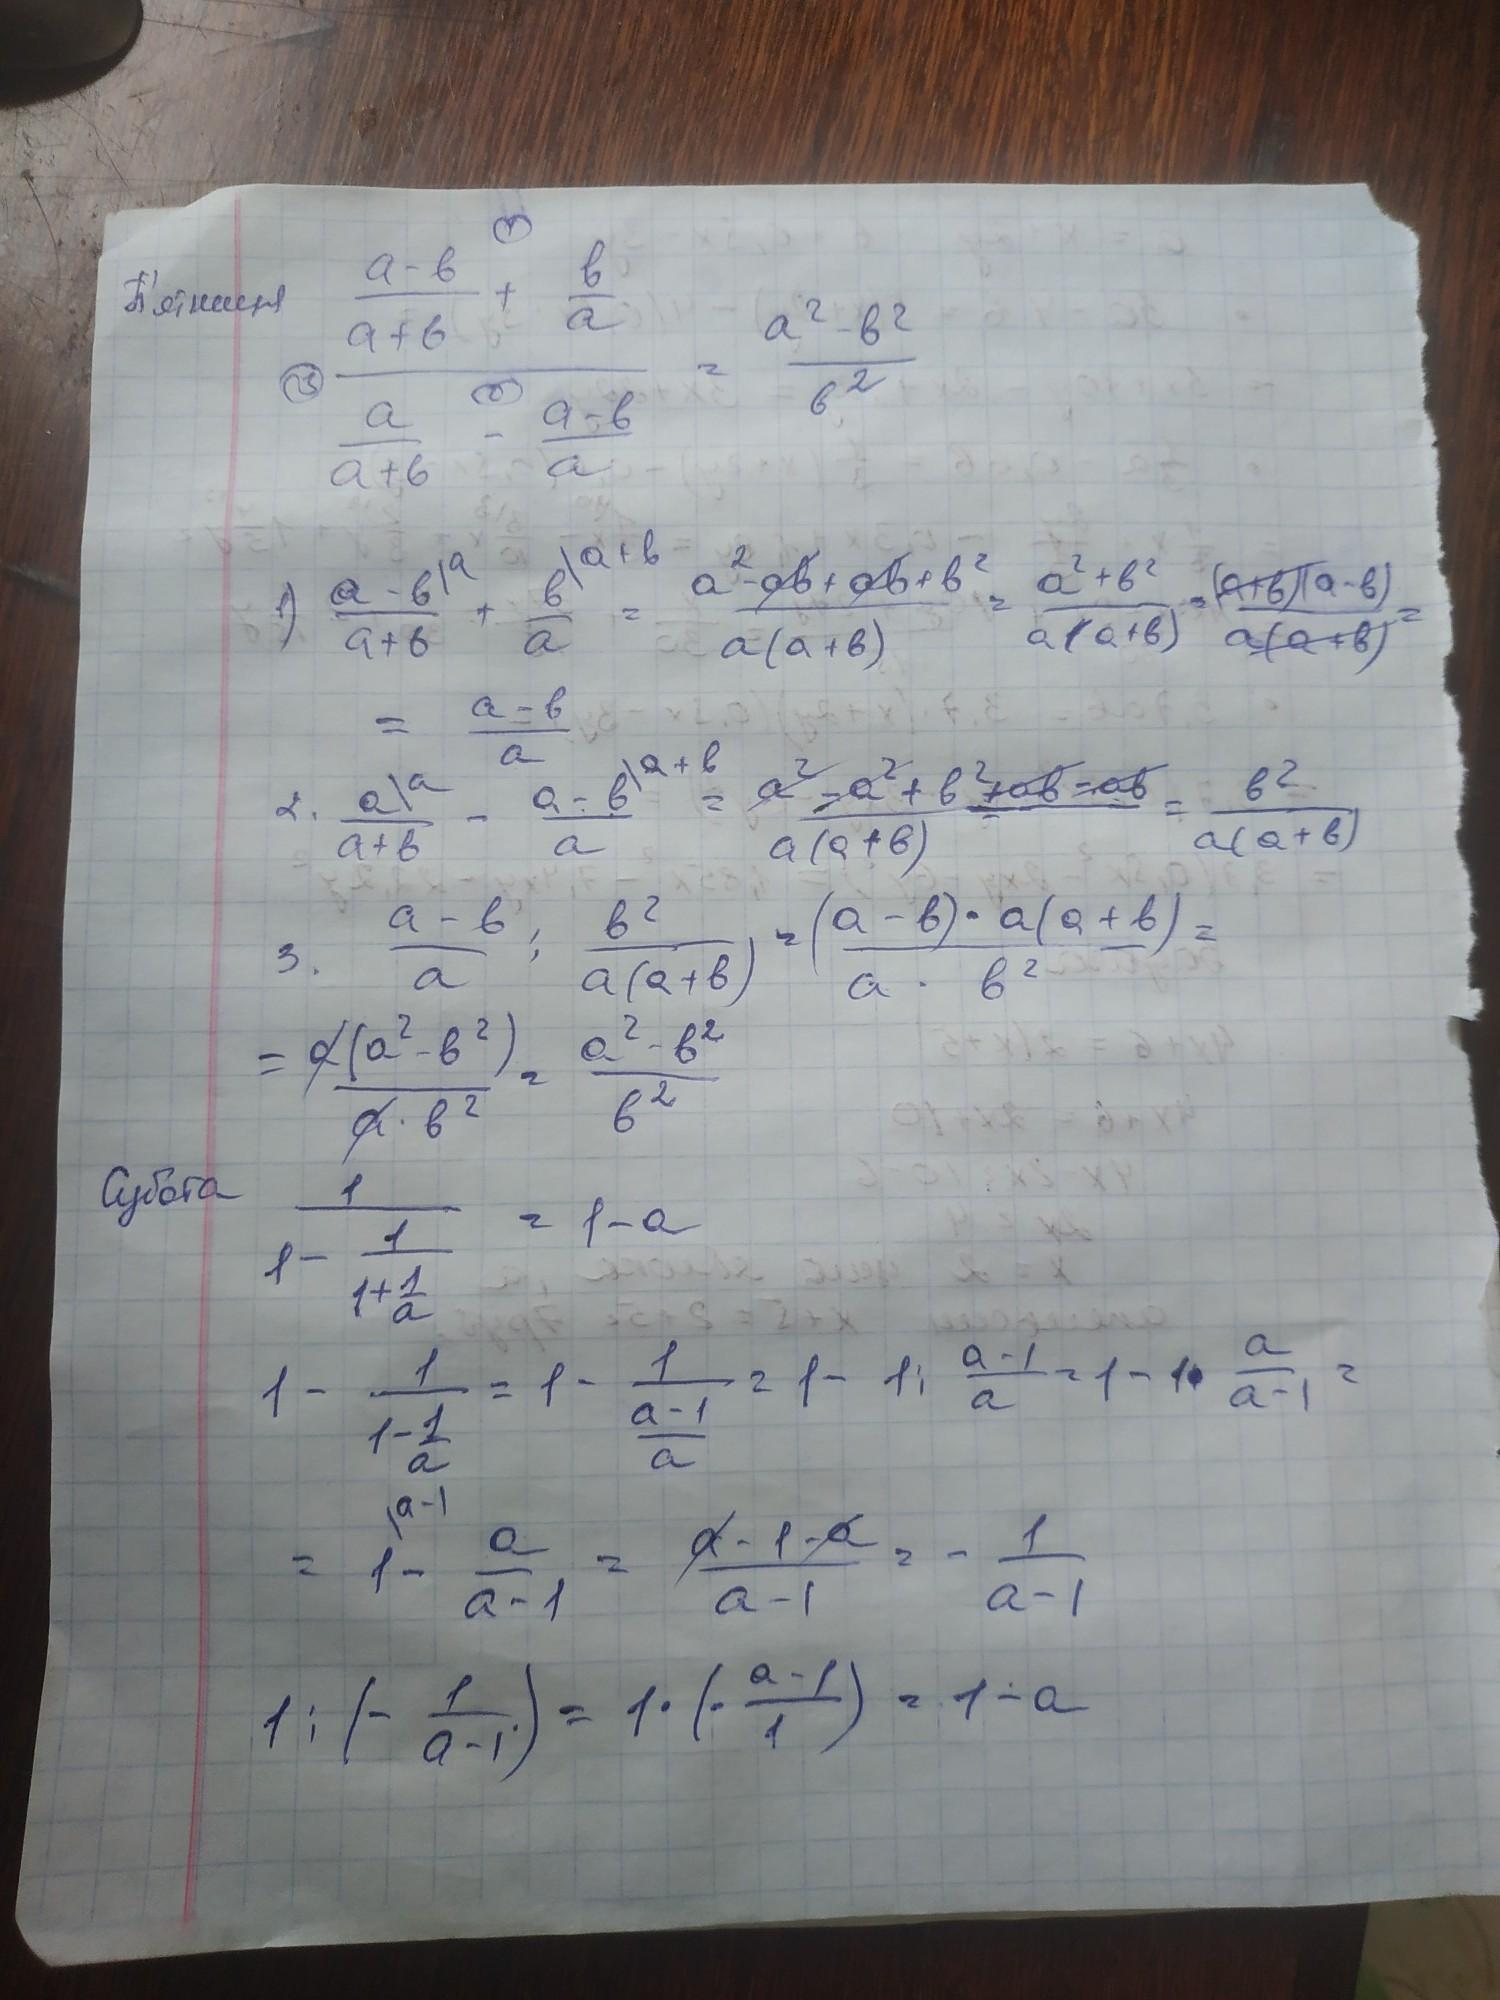 П'ятниця ((a-b)/(a+b) + b/a) / (a/(a+b) - (a-b)/a) = (a²-b²)/b²
1) (a-b)/(a+b) \a + b/a \a+b = (a²-ab+ab+b²)/(a(a+b)) = (a²+b²)/(a(a+b)) = ((a+b)(a-b))/(a(a+b)) =
= (a-b)/a
2. a/(a+b) \a - (a-b)/a \a+b = (a²-a²+b²+ab-ab)/(a(a+b)) = b²/(a(a+b))
3. (a-b)/a : b²/(a(a+b)) = ((a-b)·a(a+b))/(a·b²) =
= (a(a²-b²))/(a·b²) = (a²-b²)/b²
Субота 1/(1-1/(1+1/a)) = 1-a
1 - 1/(1-1/a) = 1 - 1/((a-1)/a) = 1 - 1 : (a-1)/a = 1 - 1· a/(a-1) =
= 1 \a-1 - a/(a-1) = (a-1-a)/(a-1) = - 1/(a-1)
1 : (- 1/(a-1)) = 1·(- (a-1)/1) = 1-a